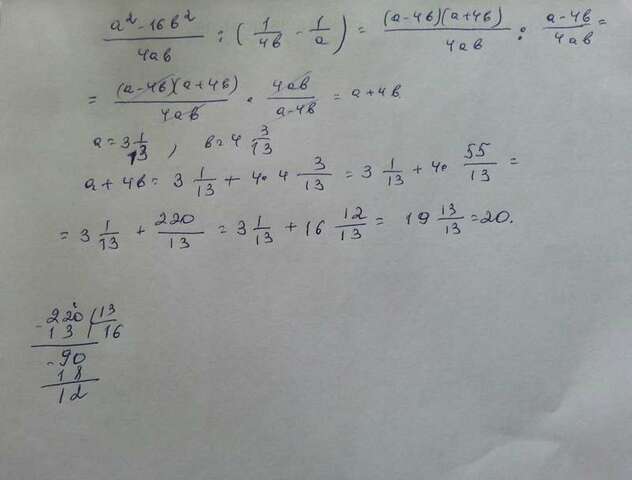 \frac{a^2 - 16b^2}{4ab} : \left( \frac{1}{4b} - \frac{1}{a} \right) = \frac{(a-4b)(a+4b)}{4ab} : \frac{a-4b}{4ab} =
= \frac{(a-4b)(a+4b)}{4ab} \cdot \frac{4ab}{a-4b} = a+4b.
a = 3\frac{1}{13}, b = 4\frac{3}{13}
a+4b = 3\frac{1}{13} + 4 \cdot 4\frac{3}{13} = 3\frac{1}{13} + 4 \cdot \frac{55}{13} =
= 3\frac{1}{13} + \frac{220}{13} = 3\frac{1}{13} + 16\frac{12}{13} = 19\frac{13}{13} = 20.
-220 | 13
13 | 16
-90
18
12